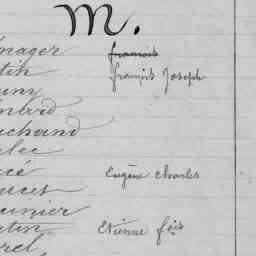 M.
énager françois
tin françois Joseph
uny
énard
uchand
lec
cé Eugène charles
uces
unier
tin Etienne fois
rel